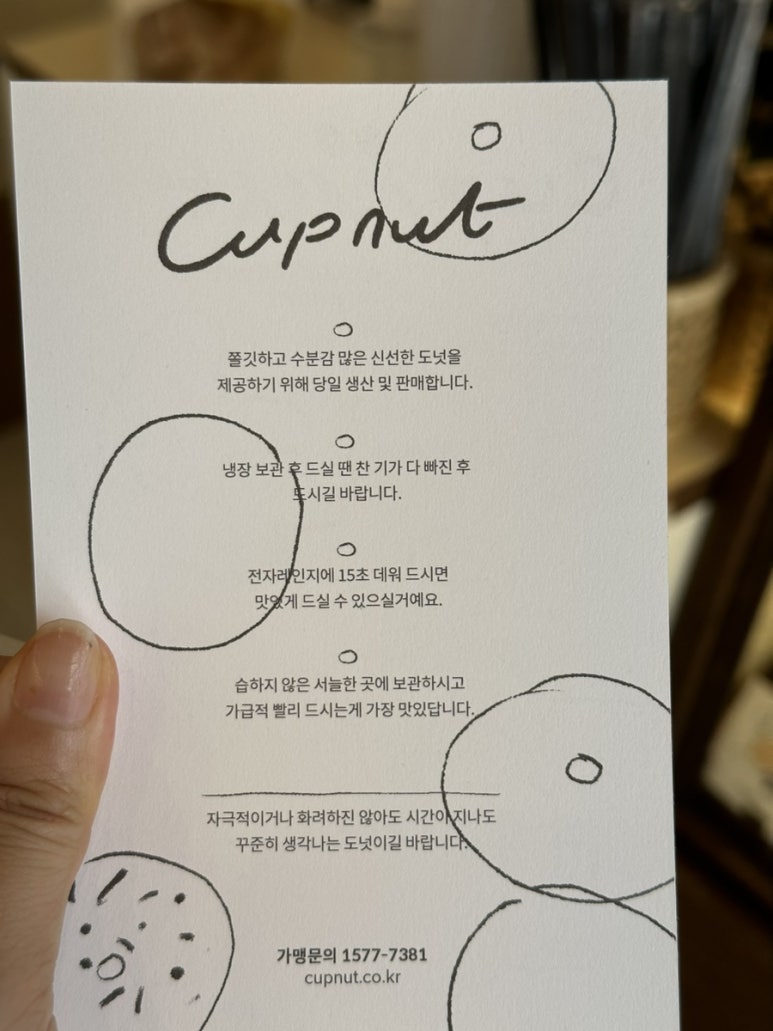 Cupnut
쫄깃하고 수분감 많은 신선한 도넛을
제공하기 위해 당일 생산 및 판매합니다.
냉장 보관 후 드실 땐 찬 기가 다 빠진 후
드시길 바랍니다.
전자레인지에 15초 데워 드시면
맛있게 드실 수 있으실거예요.
습하지 않은 서늘한 곳에 보관하시고
가급적 빨리 드시는게 가장 맛있답니다.
자극적이거나 화려하진 않아도 시간이 지나도
꾸준히 생각나는 도넛이길 바랍니다.
가맹문의 1577-7381
cupnut.co.kr